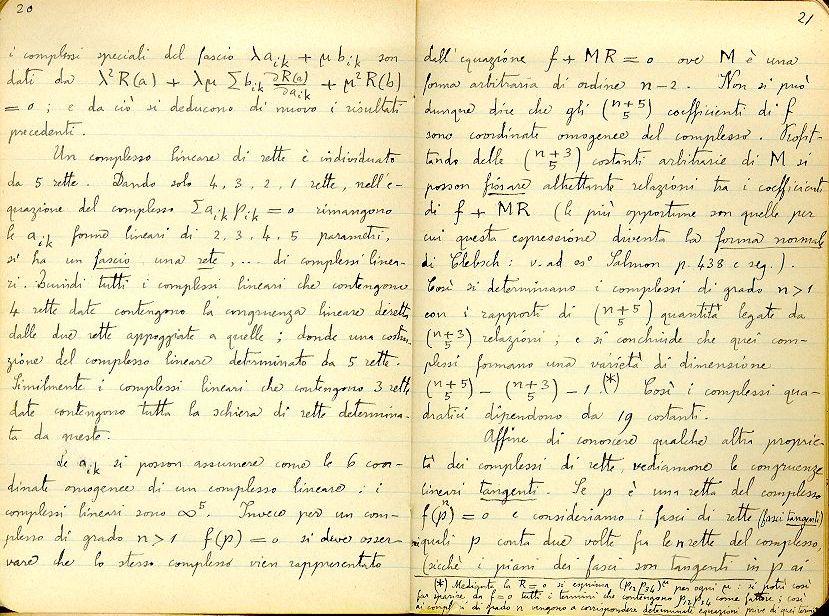 20
i complessi speciali del fascio λ a_ik + μ b_ik son
dati da λ²R(a) + λμ Σ b_ik ∂R(a)/∂a_ik + μ²R(b)
= 0 ; e da ciò si deducono di nuovo i risultati
precedenti.
Un complesso lineare di rette è individuato
da 5 rette. Dando solo 4, 3, 2, 1 rette, nell'e-
quazione del complesso Σ a_ik p_ik = 0 rimangono
le a_ik forme lineari di 2, 3, 4, 5 parametri,
si ha un fascio, una rete, ... di complessi linea-
ri. Quindi tutti i complessi lineari che contengono
4 rette date contengono la congruenza lineare diretta
dalle due rette appoggiate a quelle ; donde una costru-
zione del complesso lineare determinato da 5 rette.
Similmente i complessi lineari che contengono 3 rette
date contengono tutta la schiera di rette determina-
ta da queste.
Le a_ik si posson assumere come le 6 coor-
dinate omogenee di un complesso lineare : i
complessi lineari sono ∞⁵. Invece per un com-
plesso di grado n > 1 f(p) = 0 si deve osser-
vare che lo stesso complesso vien rappresentato
21
dall'equazione f + MR = 0 ove M è una
forma arbitraria di ordine n-2. Non si può
dunque dire che gli (n+5 5) coefficienti di f
sono coordinate omogenee del complesso. Profit-
tando delle (n+3 5) costanti arbitrarie di M si
posson fissare altrettante relazioni tra i coefficienti
di f + MR (le più opportune son quelle per
cui questa espressione diventa la forma normale
di Clebsch : v. ad es° Salmon p. 438 e seg.).
Così si determinano i complessi di grado n > 1
con i rapporti di (n+5 5) quantità legate da
(n+3 5) relazioni ; e si conchiude che quei com-
plessi formano una varietà di dimensione
(n+5 5) - (n+3 5) - 1 .(*) Così i complessi qua-
dratici dipendono da 19 costanti.
Affine di conoscere qualche altra proprie-
tà dei complessi di rette, vediamone le congruenze
lineari tangenti. Se p è una retta del complesso
f(p) = 0 e consideriamo i fasci di rette (fasci tangenti)
nei quali p conta due volte fra le n rette del complesso,
(sicchè i piani dei fasci son tangenti in p ai
(*) Mediante la R = 0 si esprima (p₁₂ p₃₄)^μ per ogni μ : si potrà così
far sparire da f = 0 tutti i termini che contengono p₁₂ p₃₄ come fattore ; così
ai compl¹ di grado n vengono a corrispondere determinate equazioni prive di quei termini